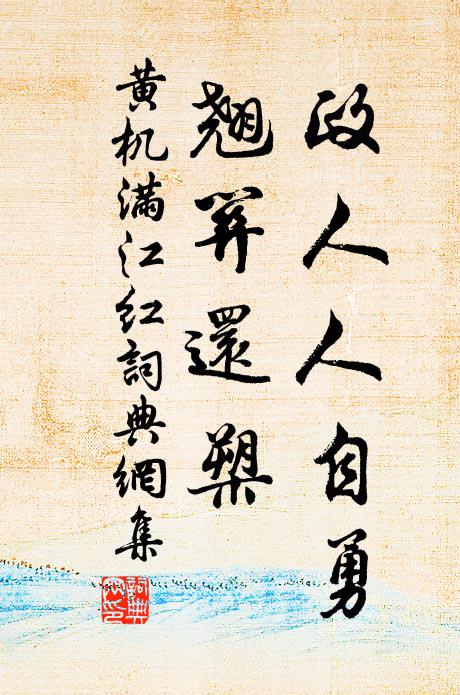 政人人自勇
翹关還槊
黄机满江红詞典網集